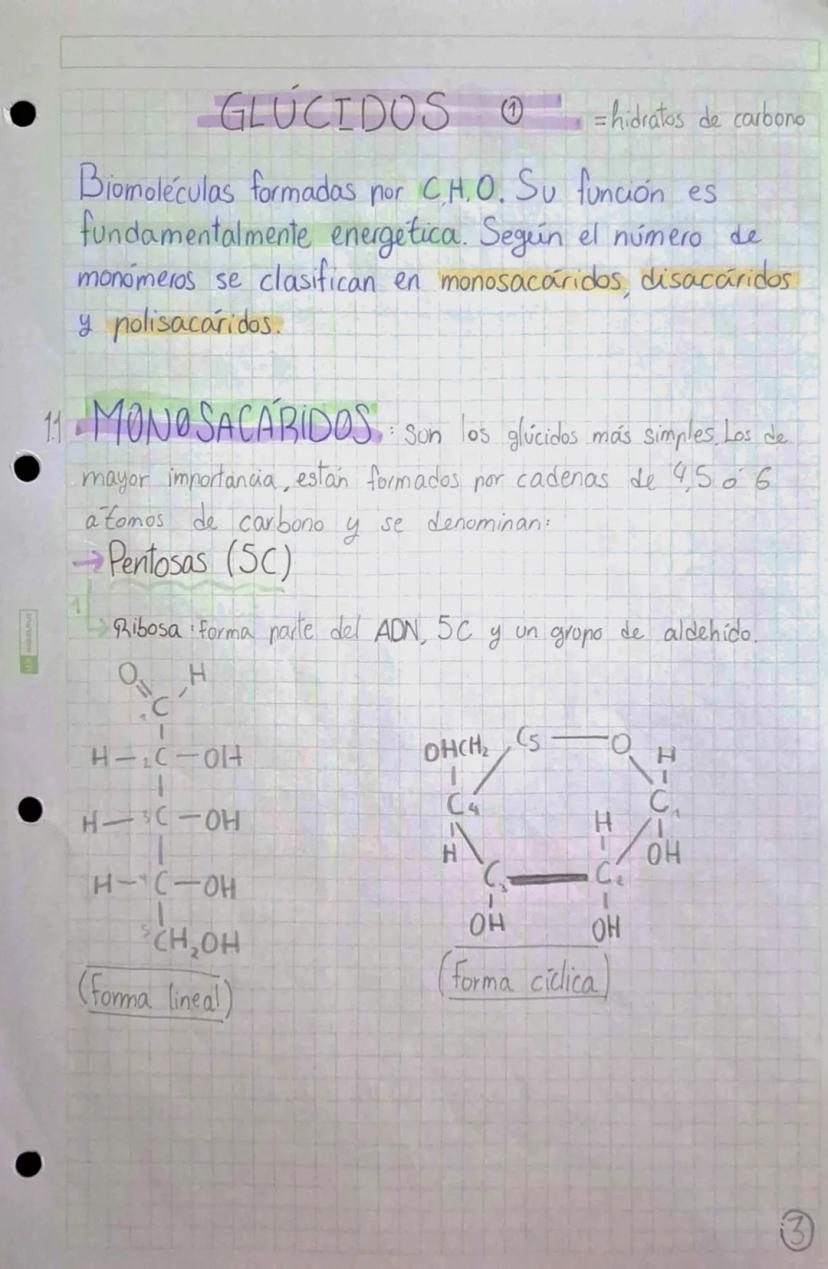 GLÚCIDOS ① = hidratos de carbono
Biomoléculas formadas por C,H,O. Su función es
fundamentalmente energética. Según el número de
monómeros se clasifican en monosacáridos, disacáridos
y polisacáridos.
1.1 MONOSACÁRIDOS: Son los glúcidos más simples. Los de
mayor importancia, están formados por cadenas de 4,5 ó 6
átomos de carbono y se denominan:
→ Pentosas (5C)
Ribosa: forma parte del ADN, 5C y un grupo de aldehído.
O H
C
H-2C-OH
H-3C-OH
H-4C-OH
5CH₂OH
(forma lineal)
OHCH₂ C5 — O H
C4 H C1
H OH
C3 C2
OH OH
(forma cíclica)
3